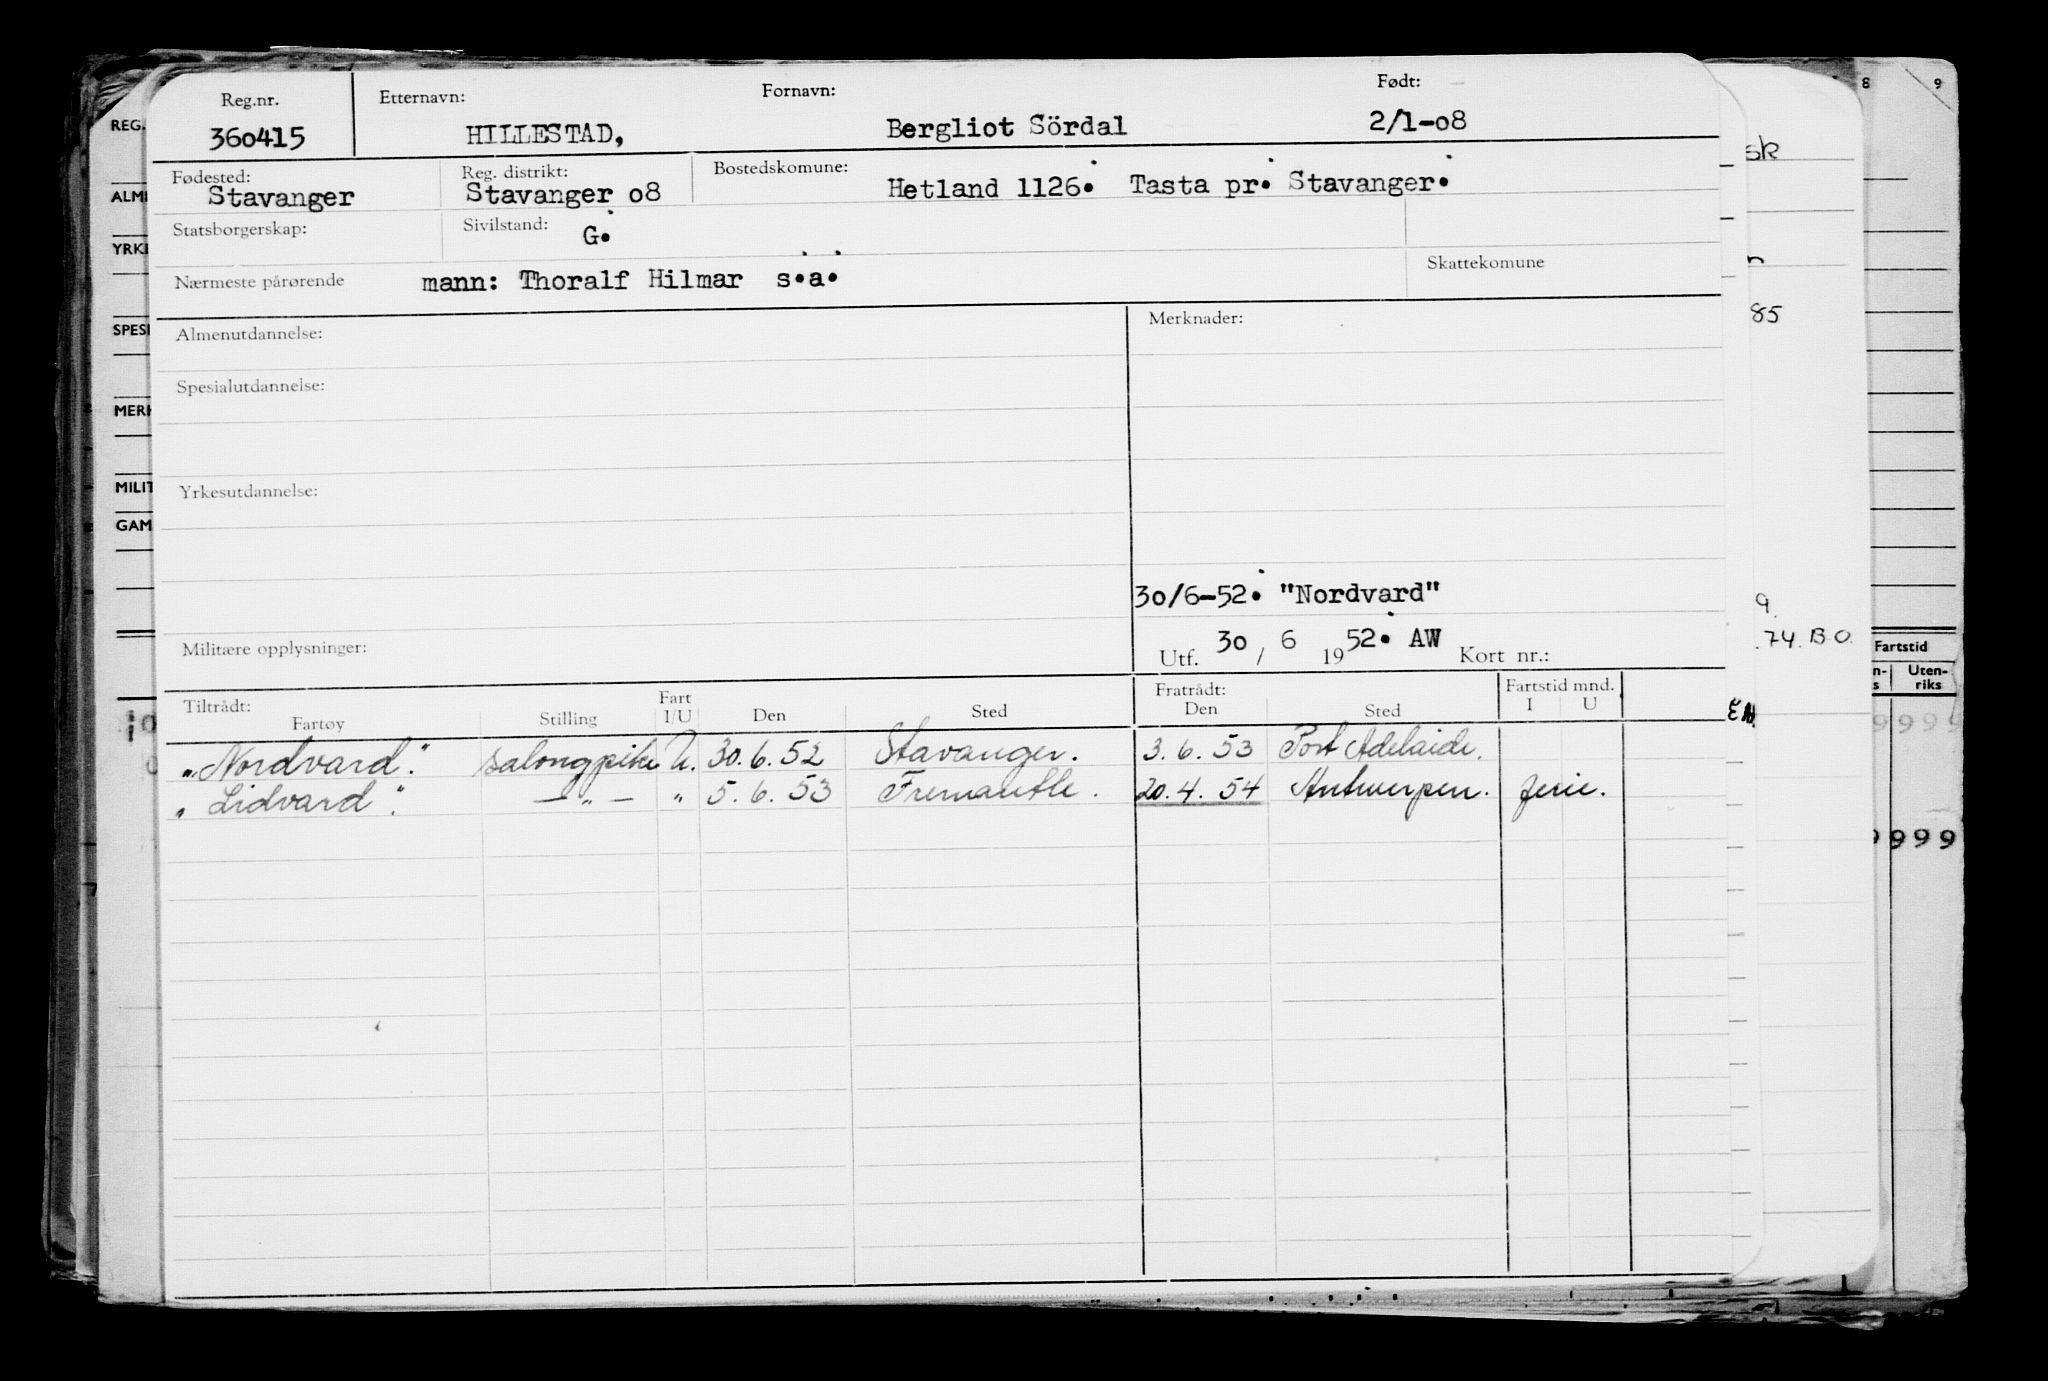 Reg.nr. Etternavn: Fornavn: Født:
360415 HILLESTAD, Bergliot Sördal 2/1-08
Fødested: Reg. distrikt: Bostedskomune:
Stavanger Stavanger 08 Hetland 1126. Tasta pr. Stavanger.
Statsborgerskap: Sivilstand: G.
Nærmeste pårørende mann: Thoralf Hilmar s.a. Skattekomune
Almenutdannelse: Merknader:
Spesialutdannelse:
Yrkesutdannelse:
30/6-52. "Nordvard"
Militære opplysninger: Utf. 30 / 6 1952. AW Kort nr.:
Tiltrådt: Fart Fratrådt: Fartstid mnd.
Fartøy Stilling I/U Den Sted Den Sted I U
"Nordvard". salongpike U. 30.6.52 Stavanger. 3.6.53 Port Adelaide.
"Lidvard". — " — " 5.6.53 Fremantle. 20.4.54 Antwerpen. ferie.
REG.
ALM
YRKE
SPESI
MERK
MILIT
GAM
8 9
sk
85
9
.74. B.O.
Fartstid
Uten-
riks
9999
999